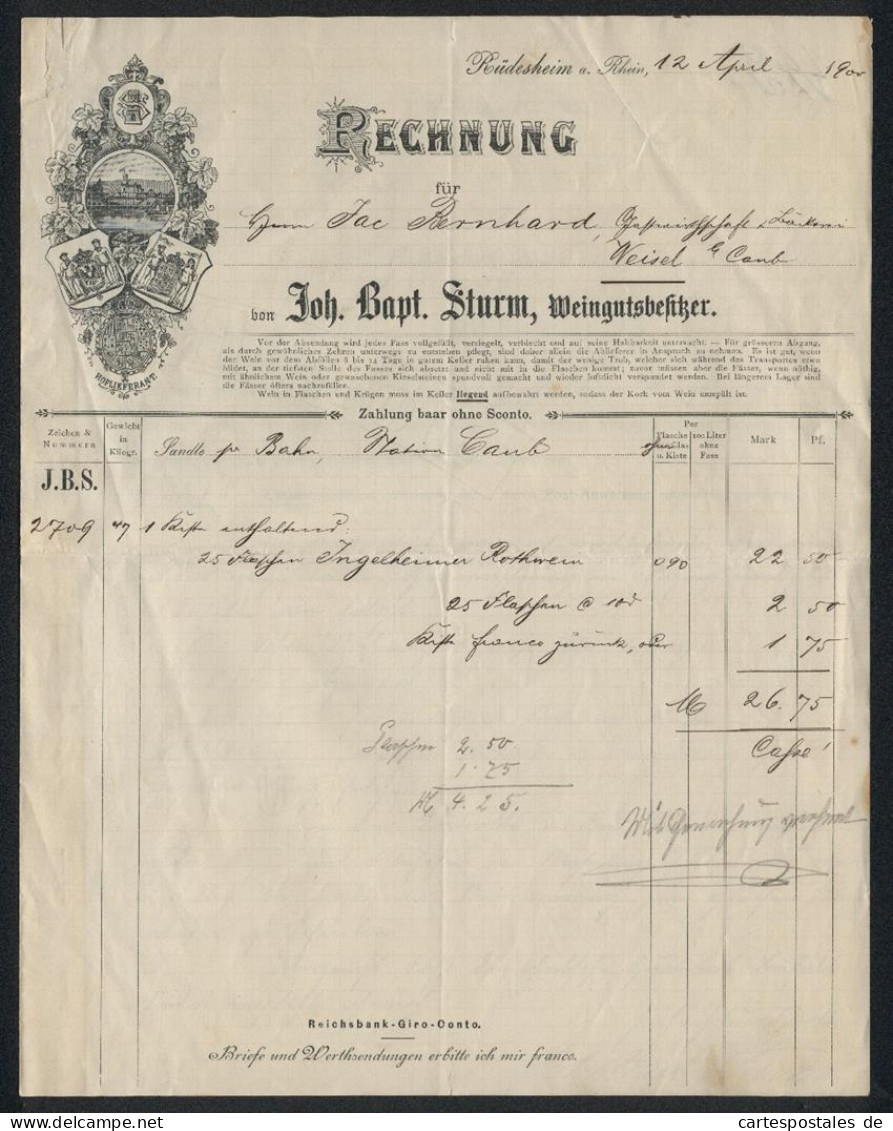 Rüdesheim a. Rhein, 12 April 1900
RECHNUNG
für
Herrn Jac Bernhard, Gastwirthschaft & Bäckerei
Weisel b/ Caub
von Joh. Bapt. Sturm, Weingutsbesitzer.
HOFLIEFERANT.
Vor der Absendung wird jedes Fass vollgefüllt, versiegelt, verbleicht und auf seine Haltbarkeit untersucht. — Für grösseren Abgang,
als durch gewöhnliches Zehren unterwegs zu entstehen pflegt, sind daher allein die Ablieferer in Anspruch zu nehmen. Es ist gut, wenn
der Wein vor dem Abfüllen 8 bis 14 Tage in gutem Keller ruhen kann, damit der wenige Trub, welcher sich während des Transportes etwa
bildet, an der tiefsten Stelle des Fasses sich absetzt und nicht mit in die Flaschen kommt; zuvor müssen aber die Fässer, wenn nöthig,
mit ähnlichem Wein oder gewaschenen Kieselsteinen spundvoll gemacht und wieder luftdicht verspundet werden. Bei längerem Lager sind
die Fässer öfters nachzufüllen.
Wein in Flaschen und Krügen muss im Keller liegend aufbewahrt werden, sodass der Kork vom Wein umspült ist.
Zahlung baar ohne Sconto.
Zeichen & Nummern
Gewicht in Kilogr.
Per
Flasche ohne Glas u. Kiste
100 Liter ohne Fass
Mark
Pf.
Sandte per Bahn, Station Caub
J.B.S.
2709 47 1 Kiste enthaltend:
25 Flaschen Ingelheimer Rothwein 0 90 22 50
25 Flaschen @ 10 2 50
Kiste franco zurück, oder 1 75
M 26.75
Cassa!
Flaschen 2.50
1.75
M 4.25.
Reichsbank-Giro-Conto.
Briefe und Werthsendungen erbitte ich mir franco.
cartespostales.de